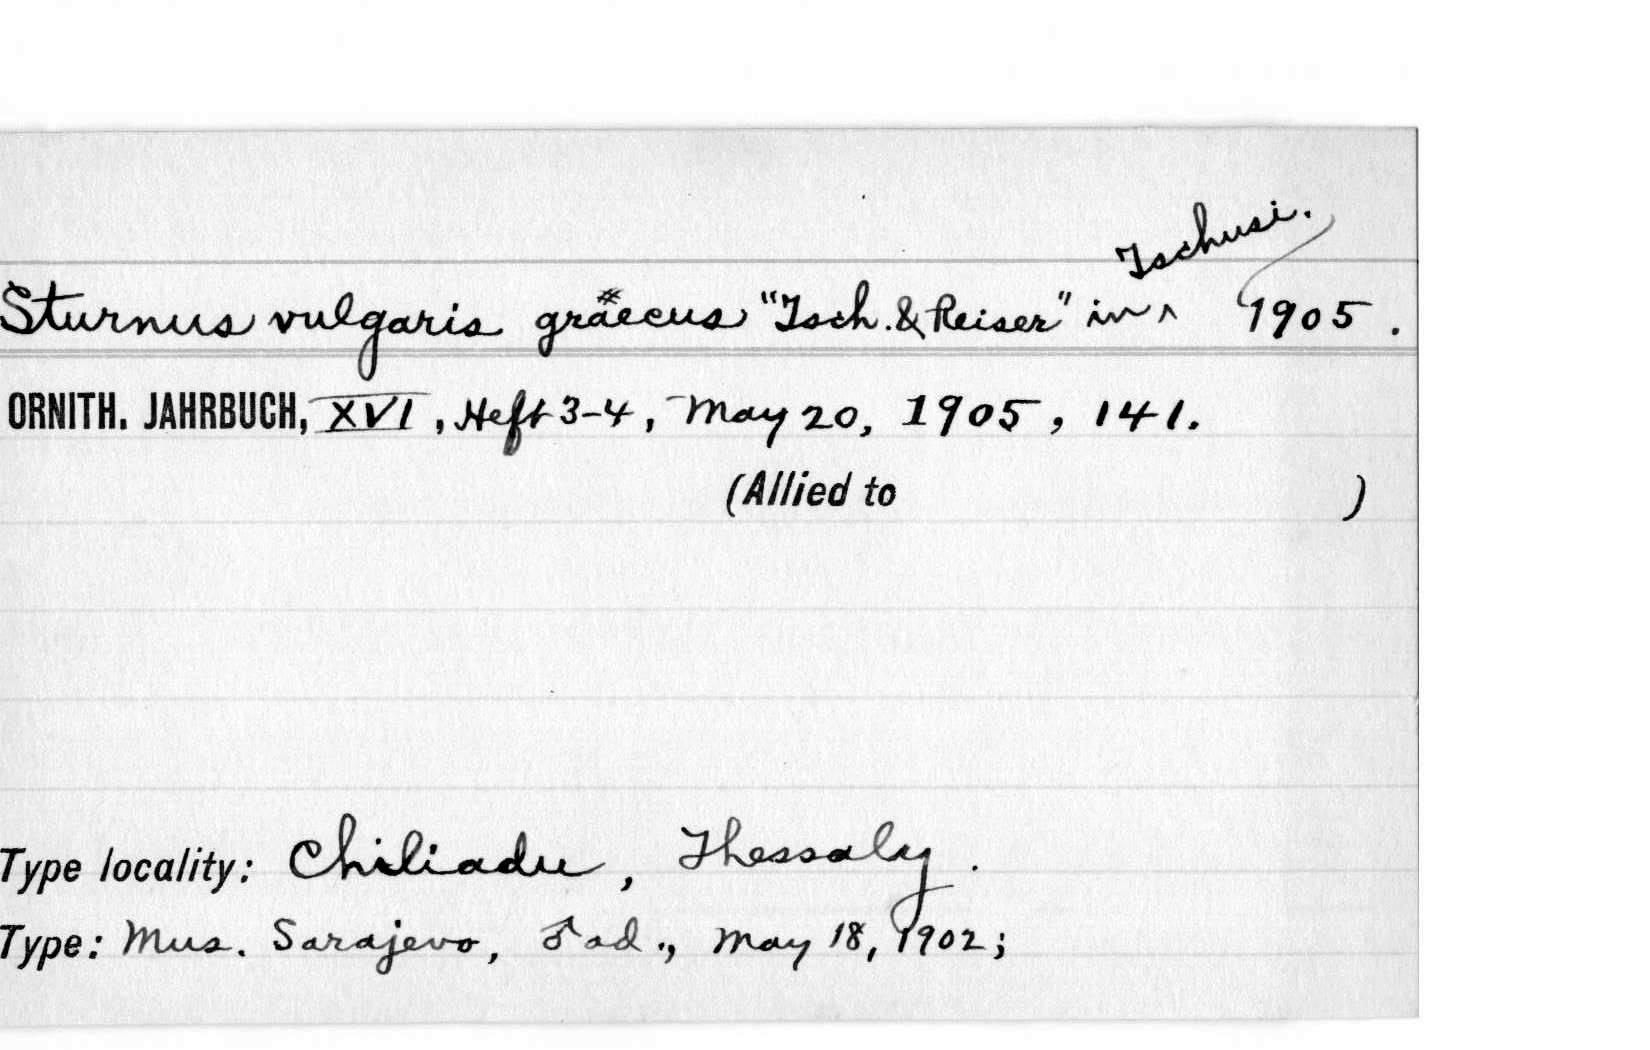 Tschusi.
Sturnus vulgaris graecus "Tsch. & Reiser" in ^ 1905.
ORNITH. JAHRBUCH, XVI, Heft 3-4, May 20, 1905, 141.
(Allied to )
Type locality: Chiliadu, Thessaly.
Type: Mus. Sarajevo, ♂ ad., May 18, 1902;